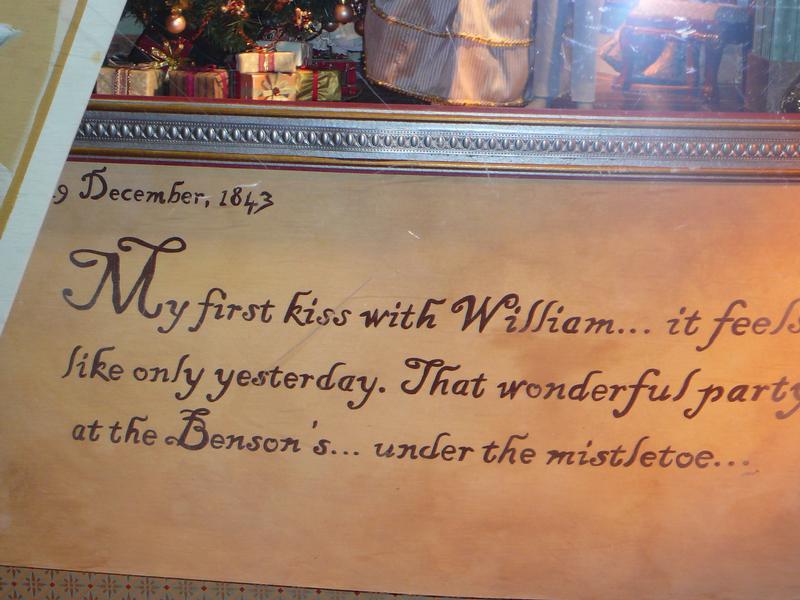 9 December, 1843
My first kiss with William... it feels
like only yesterday. That wonderful party
at the Benson's... under the mistletoe...